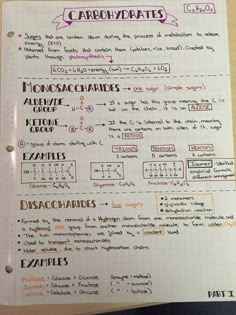 CARBOHYDRATES
C₆H₁₂O₆
Sugars that are broken down during the process of metabolism to release
energy (ATP)
Obtained from foods that contain them (potatoes, rice, bread). Created by
plants through photosynthesis
6CO₂ + 6H₂O + energy (sun) → C₆H₁₂O₆ + 6O₂
MONOSACCHARIDES → one sugar (simple sugars)
ALDEHYDE GROUP
If a sugar has this group, meaning the C is
last on the chain, it is an ALDOSE
KETONE GROUP
If the C is internal to the chain, meaning
there are carbons on both sides of it, sugar
is a KETOSE
R = group of atoms starting with C
EXAMPLES
TRIOSES
3 carbons
PENTOSES
5 carbons
HEXOSES
6 carbons
Isomer: identical
empirical formula,
different arrangement
Glucose - C₆H₁₂O₆
Fructose - C₆H₁₂O₆
DISACCHARIDES → two sugars
2 monomers
glycosidic linkage
dehydration reaction
Formed by the removal of a Hydrogen atom from one monosaccharide molecule and
a hydroxyl group from another monosaccharide molecule to form water
The two monosaccharides are joined by a covalent bond
Used to transport monosaccharides
Water soluble due to short hydrocarbon chains
EXAMPLES
Maltose = Glucose + Glucose (enzyme = maltase)
Sucrose = Glucose + Fructose (" = sucrase)
Lactose = Glucose + Galactose (" = lactase)
PART I